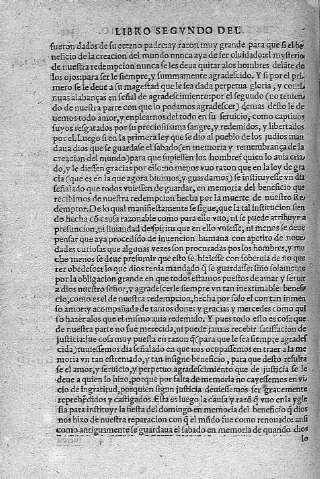 LIBRO SEGVNDO DEL
fueron dados de su eterno padre: ay razon muy grande para que si el be
neficio de la creacion del mundo nunca aya de ser oluidado: el mysterio
de nuestra redempcion nunca se les deua quitar a los hombres delãte de
los ojos: para ser le siempre, y summamente agradescido. Y si por el pri
mero se le deue a su magestad que le sea dada perpetua gloria, y conti
nuas alabanças en señal de agradescimiento: por el segundo (no tenien
do de nuestra parte con que lo podamos agradescer) demas desto le de
uemos todo amor, y emplearnos del todo en su seruicio, como captiuos
suyos rescatados por su preciosissima sangre, y redemidos, y libertados
por el. Luego si en la primera ley que se dio al pueblo de los judios man
daua dios que se guardasse el sabado (en memoria y remembrança de la
creacion del mundo) para que supiessen los hombres quien lo auia cria
do, y le diessen gracias por ello: no menos uuo razon que en la ley de gra
cia (que es en la que agora biuimos, y guardamos) se instituyesse vn dia
señalado que todos vuiessen de guardar, en memoria del beneficio que
recibimos de nuestra redempcion hecha por la muerte de nuestro Re
demptor. De lo qual manifiestamente se sigue, que la tal institucion sien
do hecha cõ causa razonable como para ello vuo, ni se puede atribuyr a
presuncion, ni liuiandad de spiritu que en ello vuiesse, ni menos se deue
pensar que aya procedido de inuencion humana con apetito de noue-
dades curiosas que algunas vezes son procuradas por los hombres, y mu
cho menos se deue presumir que esto se hiziesse con soberuia de no que
rer obedescer lo que dios tenia mandado (si se guardasse) sino solamente
por la obligacion grande en que todos estamos puestos de amar y seruir
a dios nuestro señor, y agradescerle siempre vn tan inextimable benefi-
cio, como es el de nuestra redempcion, hecha por solo el con tan inmen
so amor y acompañada de tantos dones y gracias y mercedes como qui
so hazer a los que el mismo auia redemido. Y pues todo esto es cosa que
de nuestra parte no fue merecido, ni puede jamas recebir satisfacion de
justicia: fue cosa muy puesta en razon q̃ para que le sea siempre agrades
cida, tuuiessemos dia señalado en que nos ocupassemos en traer a la me
moria vn tan estremado, y tan insigne beneficio, para que desto resulte
se el amor, y seruicio, y perpetuo agradescimiento que de justicia se le
deue a quien lo hizo, porque por falta de memoria no cayessemos en vi
cio de ingratitud, por quien segun justicia deuiessemos ser grauemente
reprehẽdidos y castigados. Esta es luego la causa y razõ q̃ vuo en la ygle
sia para instituyr la fiesta del domingo en memoria del beneficio q̃ dios
nos hizo de nuestra reparacion con q̃ el mũdo fue como renouado: assi
como antiguamente se guardaua el sabado en memoria de quando dios
lo